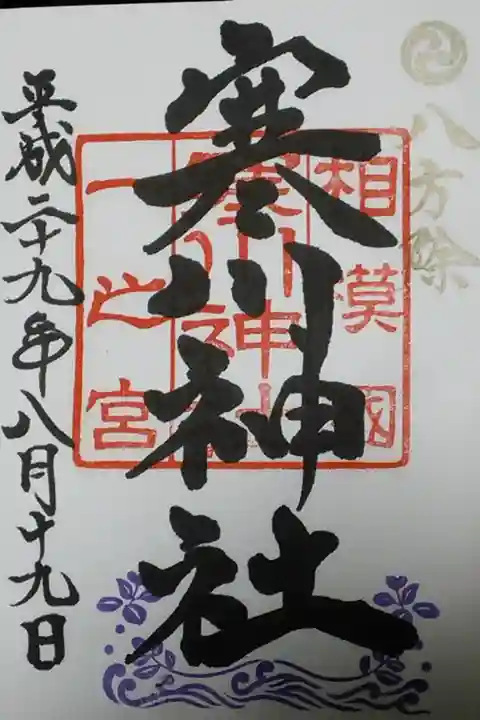 八方除
寒川神社
相模國
寒川神社
一之宮
平成二十九年八月十九日